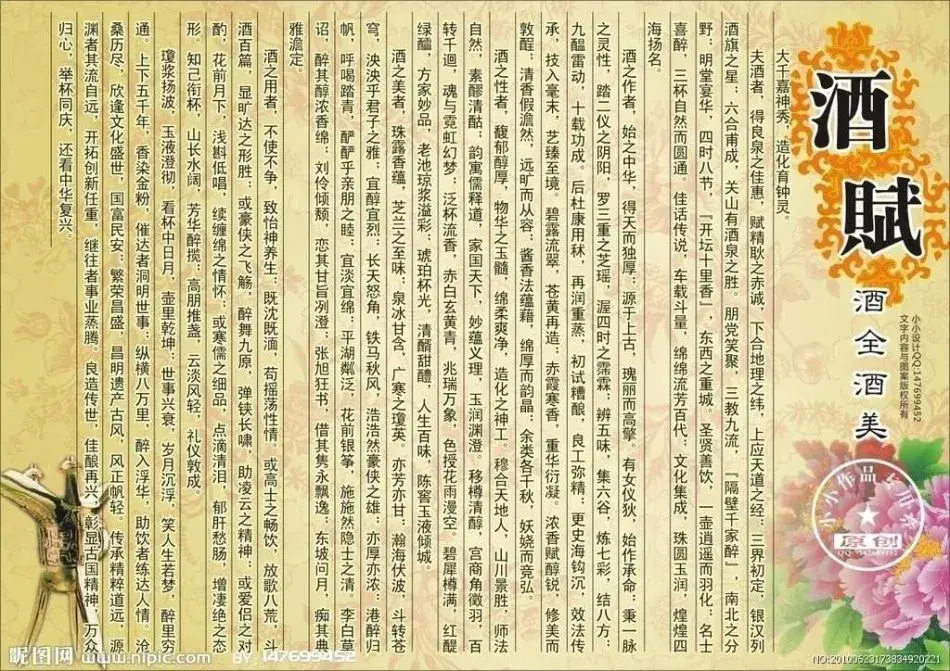 酒賦
酒全酒美
小小设计QQ:147699452
文字内容与图案版权所有
大千嘉神秀，造化育钟灵。
夫酒者，得良泉之佳惠，赋精耿之赤诚，下合地理之纬，上应天道之经：三界初定，银汉列
酒旗之星：六合甫成，关山有酒泉之胜。朋党笑聚，三教九流，『隔壁千家醉』，南北之分
野：明堂宴华，四时八节，『开坛十里香』，东西之重城。圣贤善饮，一壶逍遥而羽化：名士
喜醉，三杯自然而圆通。佳话传说，车载斗量，绵绵流芳百代：文化集成，珠圆玉润，煌煌四
海扬名。
酒之作者，始之中华，得天而独厚：源于上古，瑰丽而高擎。有女仪狄，始作承命：秉一脉
之灵性，踏二仪之阴阳，罗三重之芝瑶，渥四时之霈霖，辨五味，集六谷，炼七彩，结八方：
九醖雷动，十载功成。后杜康用秫，再润重蒸，初试糟酿，良工弥精：更史海钩沉，效法传
承，技入毫末，艺臻至境。碧露流翠，苍黄再造：赤霞寒香，重华衍凝。浓香赋醇锐，修美而
敦酲：清香假澹然，远旷而从容，酱香法蕴藉，绵厚而韵晶：余类各千秋，妖娆而竞弘。
酒之性者，馥郁醇厚，物华之玉髓，绵柔爽净，造化之神工。穆合天地人，山川景胜，师法
自然，素醪清酤：韵寓儒释道，家国天下，妙蕴义理，玉润渊澄。移樽清醇，宫商角徵羽，百
转千迴，魂与霓虹幻梦：泛杯流香，赤白玄黄青，兆瑞万象，色授花雨漫空。碧犀樽满，红醍
绿醽，方家妙品，老池琼浆溢彩：琥珀杯光，清醑甜醴，人生百味，陈窖玉液倾城。
酒之美者，珠露香蕴，芝兰之至味，泉冰甘含，广寒之瓊英。亦芳亦甘：瀚海伏波，斗转苍
穹，泱泱乎君子之雅，宜醇宜烈：长天怒角，铁马秋风，浩浩然豪侠之雄：亦厚亦浓：港醉归
帆，呼喝踏青，酽酽乎亲朋之睦：宜淡宜绵：平湖粼泛，花前银筝，施施然隐士之清。李白草
诏，醉其醇浓香绵：刘伶倾颓，恋其甘旨冽澄：张旭狂书，借其隽永飘逸：东坡问月，痴其典
雅澹定。
酒之用者，不使不争，致怡神养生：既沈既湎，苟摇荡性情，或高士之畅饮，放歌八荒，斗
酒百篇，显旷达之形胜：或豪侠之飞觞，醉舞九原，弹铗长啸，助凌云之精神：或爱侣之对
酌，花前月下，浅斟低唱，续缠绵之情怀：或寒儒之细品，点滴清泪，郁肝愁肠，增凄绝之态
形。知己衔杯，山长水阔，芳华醉揽：高朋推盏，云淡风轻，礼仪敦成。
瓊浆扬波，玉液澄彻，看杯中日月，壶里乾坤：世事兴衰，岁月沉浮，笑人生若梦，醉里穷
通。上下五千年，香染金粉，催达者洞明世事：纵横八万里，醉入浮华，助饮者练达人情。沧
桑历尽，欣逢文化盛世，国富民安：繁荣昌盛，昌明遗产古风，风正帆轻。传承精粹道远，源
渊者其流自远，开拓创新任重，继往者事业蒸腾。良造传世，佳酿再兴，彰显古国精神，万众
归心，举杯同庆，还看中华复兴。
小小作品专用章
原创
QQ:147699452
昵图网 www.nipic.com
BY: 147699452
NO:20100523173834920221